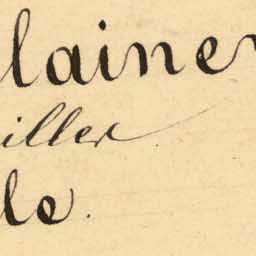 lainer
iller
le.